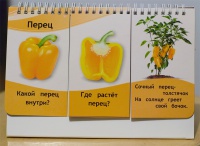 Перец
Какой перец
внутри?
Где растёт
перец?
Сочный перец-
толстячок
На солнце греет
свой бочок.